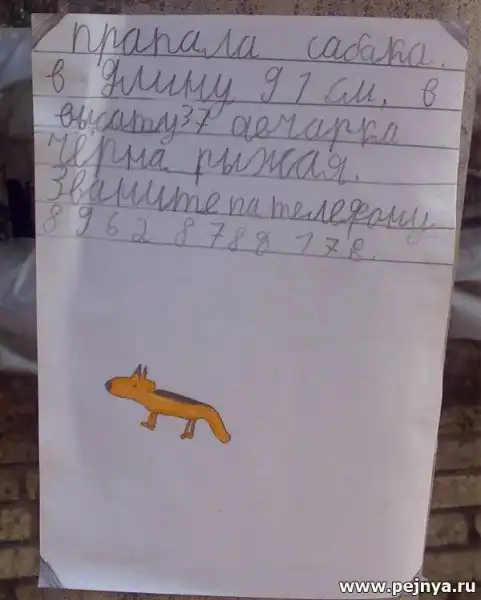 прапала сабака.
в длину 91 см, в
высату 37 авчарка
чёрна рыжая.
Званите па телефону
8 9 6 2 8 7 8 8 1 7 8.
www.pejnya.ru